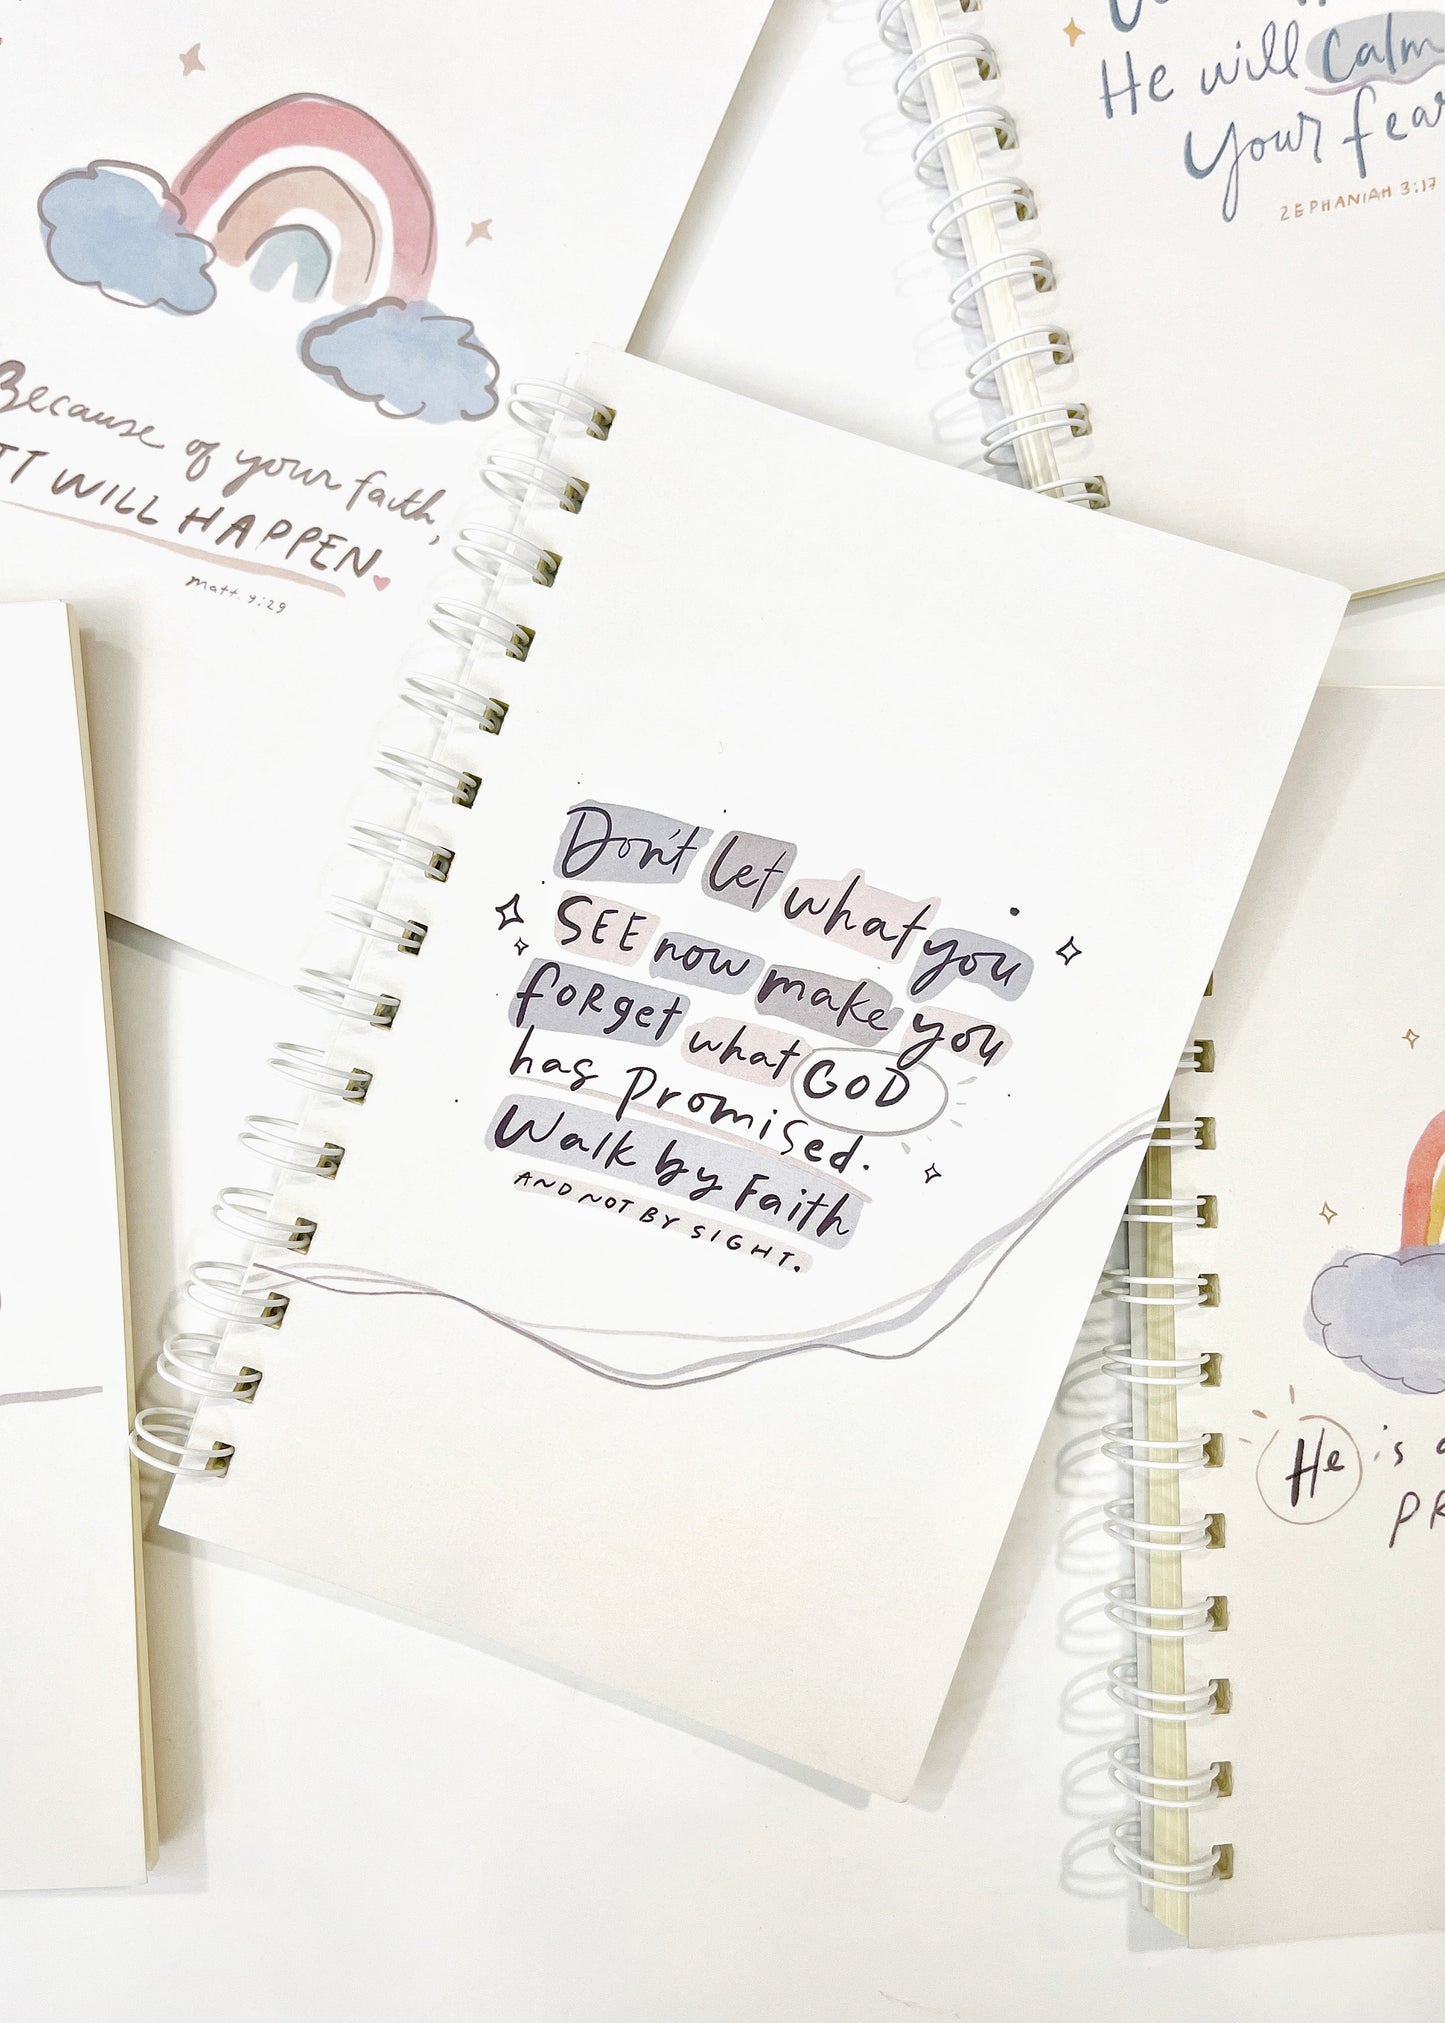 He will calm
Your
ZEPHANIAH 3:17
Because of your faith,
IT WILL HAPPEN.
Matt. 9:29
Don't let what you
SEE now make you
forget what GOD
has promised.
Walk by Faith
AND NOT BY SIGHT.
He is